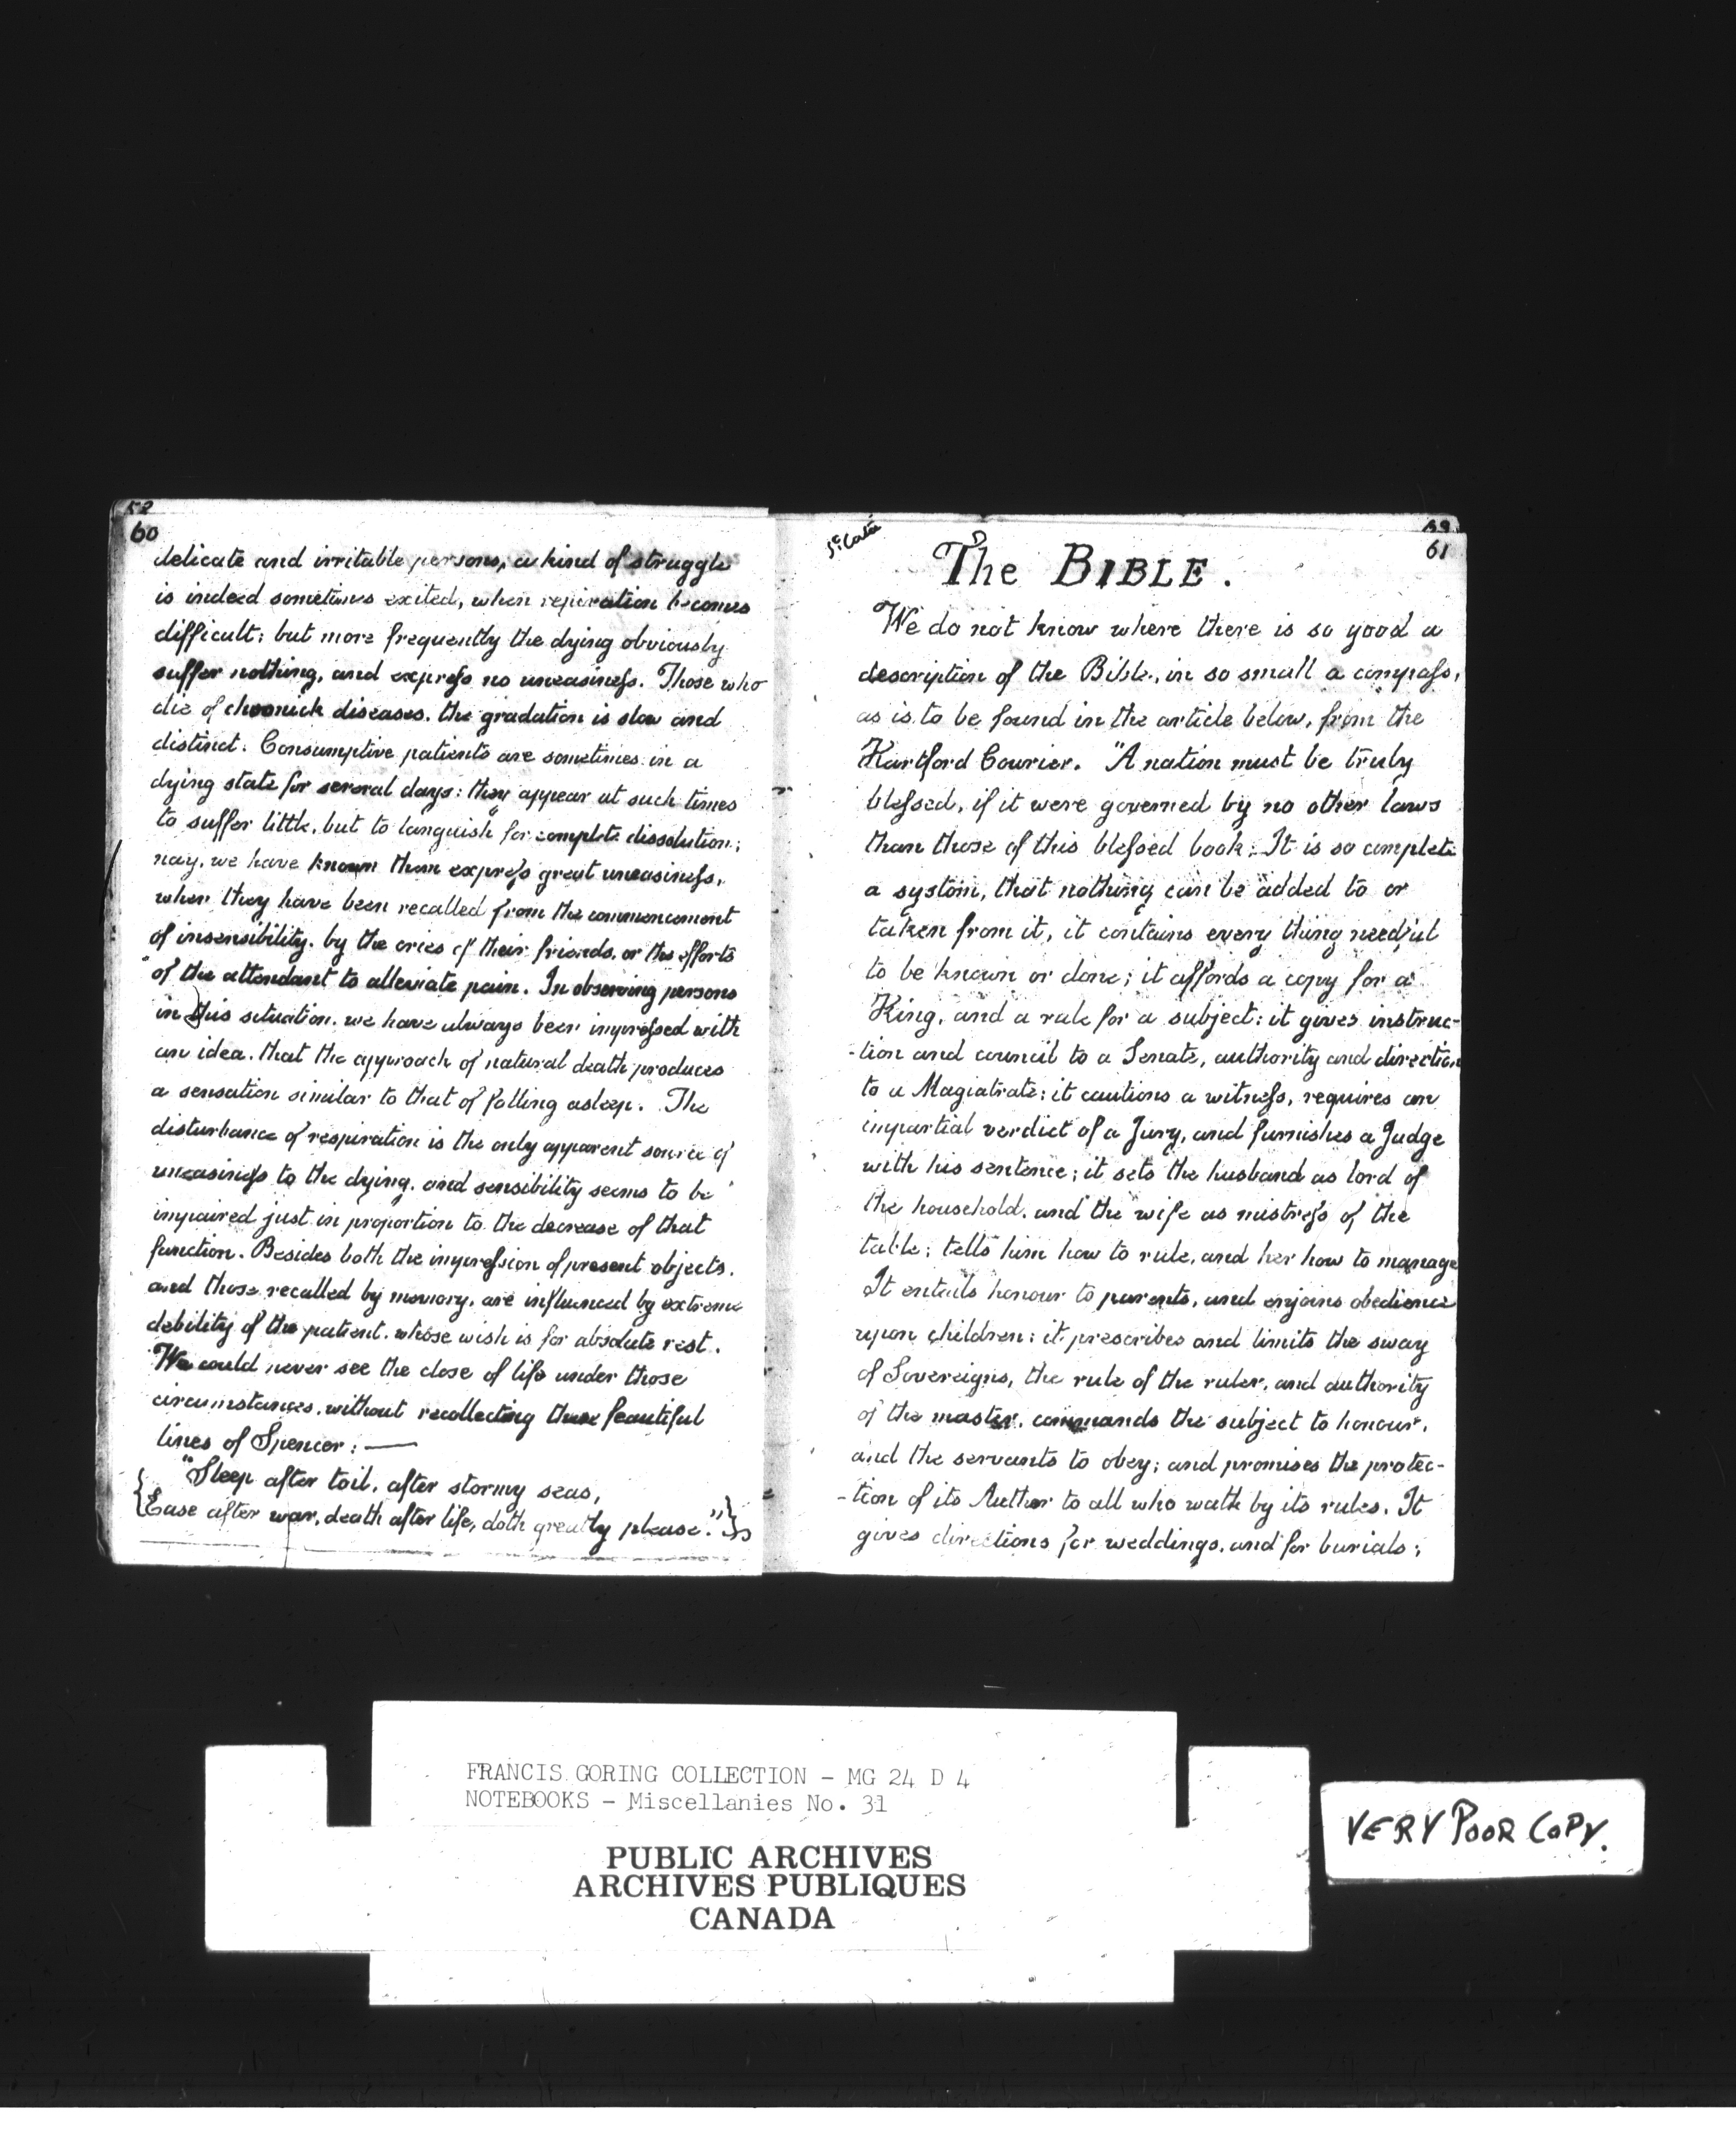 52
60
delicate and irritable persons, a kind of struggle
is indeed sometimes excited, when repiration becomes
difficult; but more frequently the dying obviously
suffer nothing, and express no uneasiness. Those who
die of chronick diseases. the gradation is slow and
distinct. Consumptive patients are sometimes in a
dying state for several days: they appear at such times
to suffer little, but to languish for complete dissolution;
nay, we have known them express great uneasiness,
when they have been recalled from the commencement
of insensibility. by the cries of their friends, or the efforts
of the attendant to alleviate pain. In observing persons
in this situation. we have always been impressed with
an idea. that the approach of natural death produces
a sensation similar to that of falling asleep. The
disturbance of respiration is the only apparent source of
uneasiness to the dying. and sensibility seems to be
impaired just in proportion to the decrease of that
function. Besides both the impression of present objects.
and those recalled by memory, are influenced by extreme
debility of the patient. whose wish is for absolute rest.
We could never see the close of life under those
circumstances, without recollecting these beautiful
lines of Spencer: —
"Sleep after toil, after stormy seas,
Ease after war, death after life, doth greatly please."
61
The BIBLE.
We do not know where there is so good a
description of the Bible, in so small a compass,
as is to be found in the article below, from the
Hartford Courier. "A nation must be truly
blessed, if it were governed by no other laws
than those of this blessed book; It is so complete
a system, that nothing can be added to or
taken from it, it contains every thing needful
to be known or done; it affords a copy for a
King, and a rule for a subject: it gives instruc-
-tion and council to a Senate, authority and direction
to a Magiatrate: it cautions a witness, requires an
impartial verdict of a Jury, and furnishes a Judge
with his sentence; it sets the husband as lord of
the household. and the wife as mistress of the
table; tells him how to rule, and her how to manage
It entails honour to parents, and enjoins obedience
upon children: it prescribes and limits the sway
of Sovereigns, the rule of the ruler, and authority
of the master. commands the subject to honour,
and the servants to obey; and promises the protec-
-tion of its Author to all who walk by its rules. It
gives directions for weddings, and for burials;
FRANCIS GORING COLLECTION - MG 24 D 4
NOTEBOOKS - Miscellanies No. 31
PUBLIC ARCHIVES
ARCHIVES PUBLIQUES
CANADA
VERY POOR COPY.